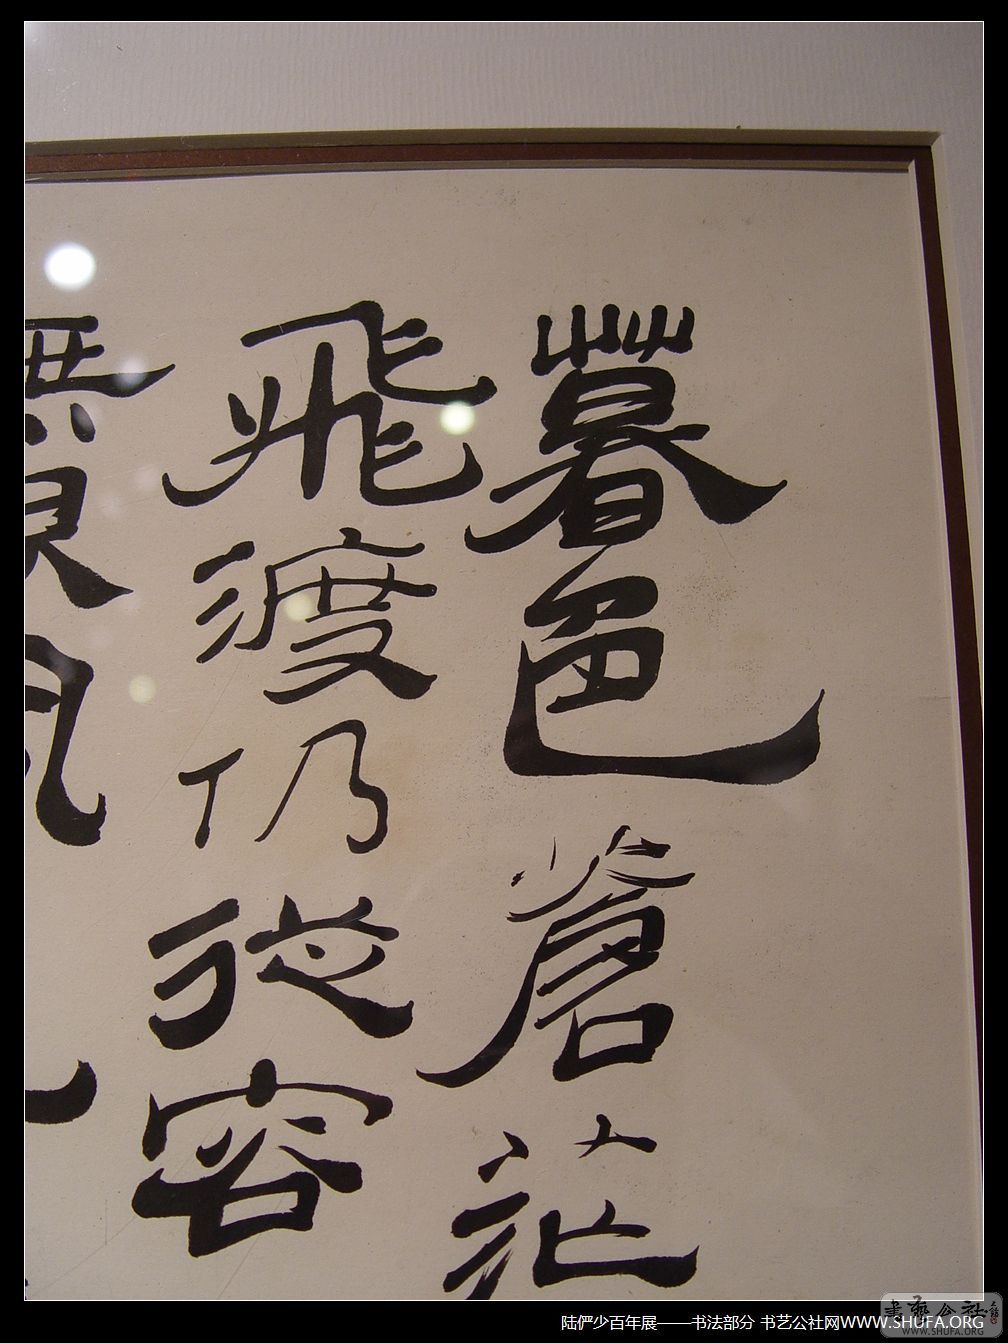 暮色蒼茫
飛渡仍從容
陆俨少百年展——书法部分 书艺公社网WWW.SHUFA.ORG
書藝公社
WWW.SHUFA.ORG